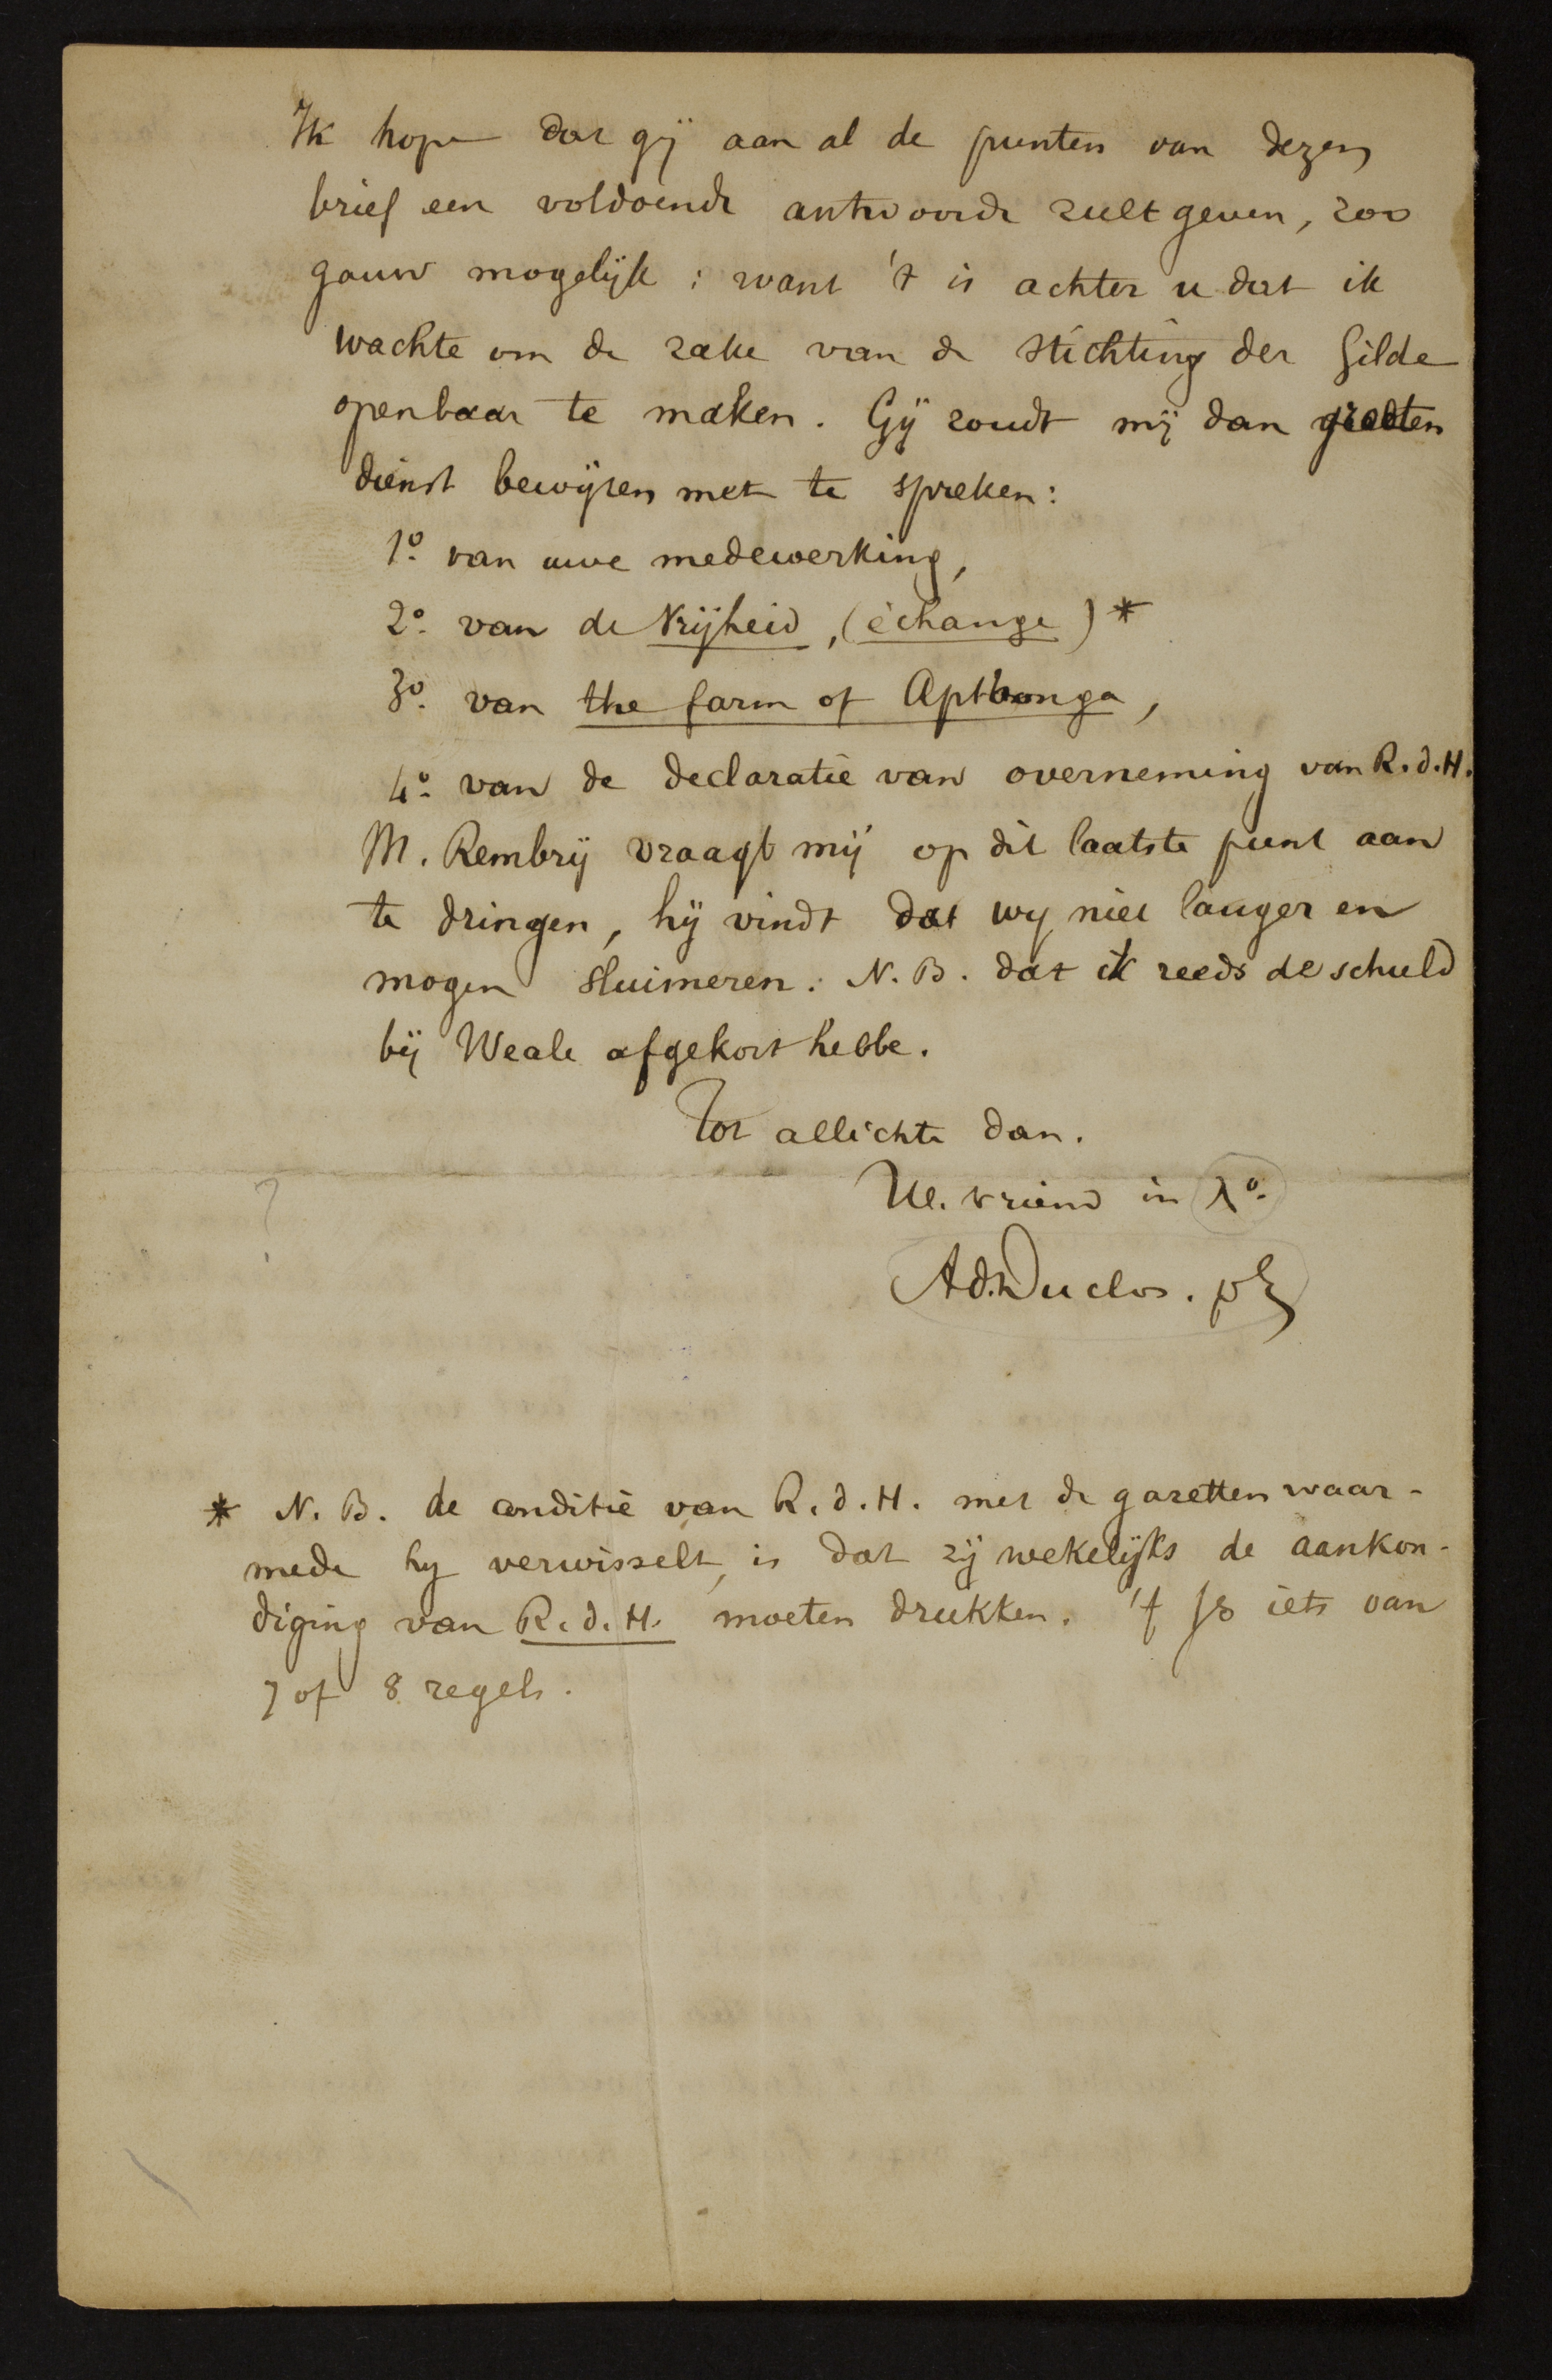 Ik hope dat gij aan al de punten van dezen
brief een voldoende antwoorde zult geven, zoo
gauw mogelijk : want 't is achter u dat ik
wachte om de zake van de stichting der Gilde
openbaar te maken. Gij zoudt mij dan grooten
dienst bewijzen met te spreken:
1º. van uwe medewerking,
2º. van de Vrijheid, (échange) *
3º. van the farm of Apthonga,
4º. van de declaratie van overneming van R.d.H.
M. Rembry vraagt mij op dit laatste punt aan
te dringen, hij vindt dat wy niet langer en
mogen sluimeren. N.B. dat ik reeds de schuld
bij Weale afgekort hebbe.
Tot allichte dan.
Ul. vriend in Xº.
Ad. Duclos. pb
?
* N.B. de conditie van R.d.H. met de gazetten waar-
mede hy verwisselt, is dat zij wekelijks de aankon-
diging van R.d.H. moeten drukken. 't Is iets van
7 of 8 regels.